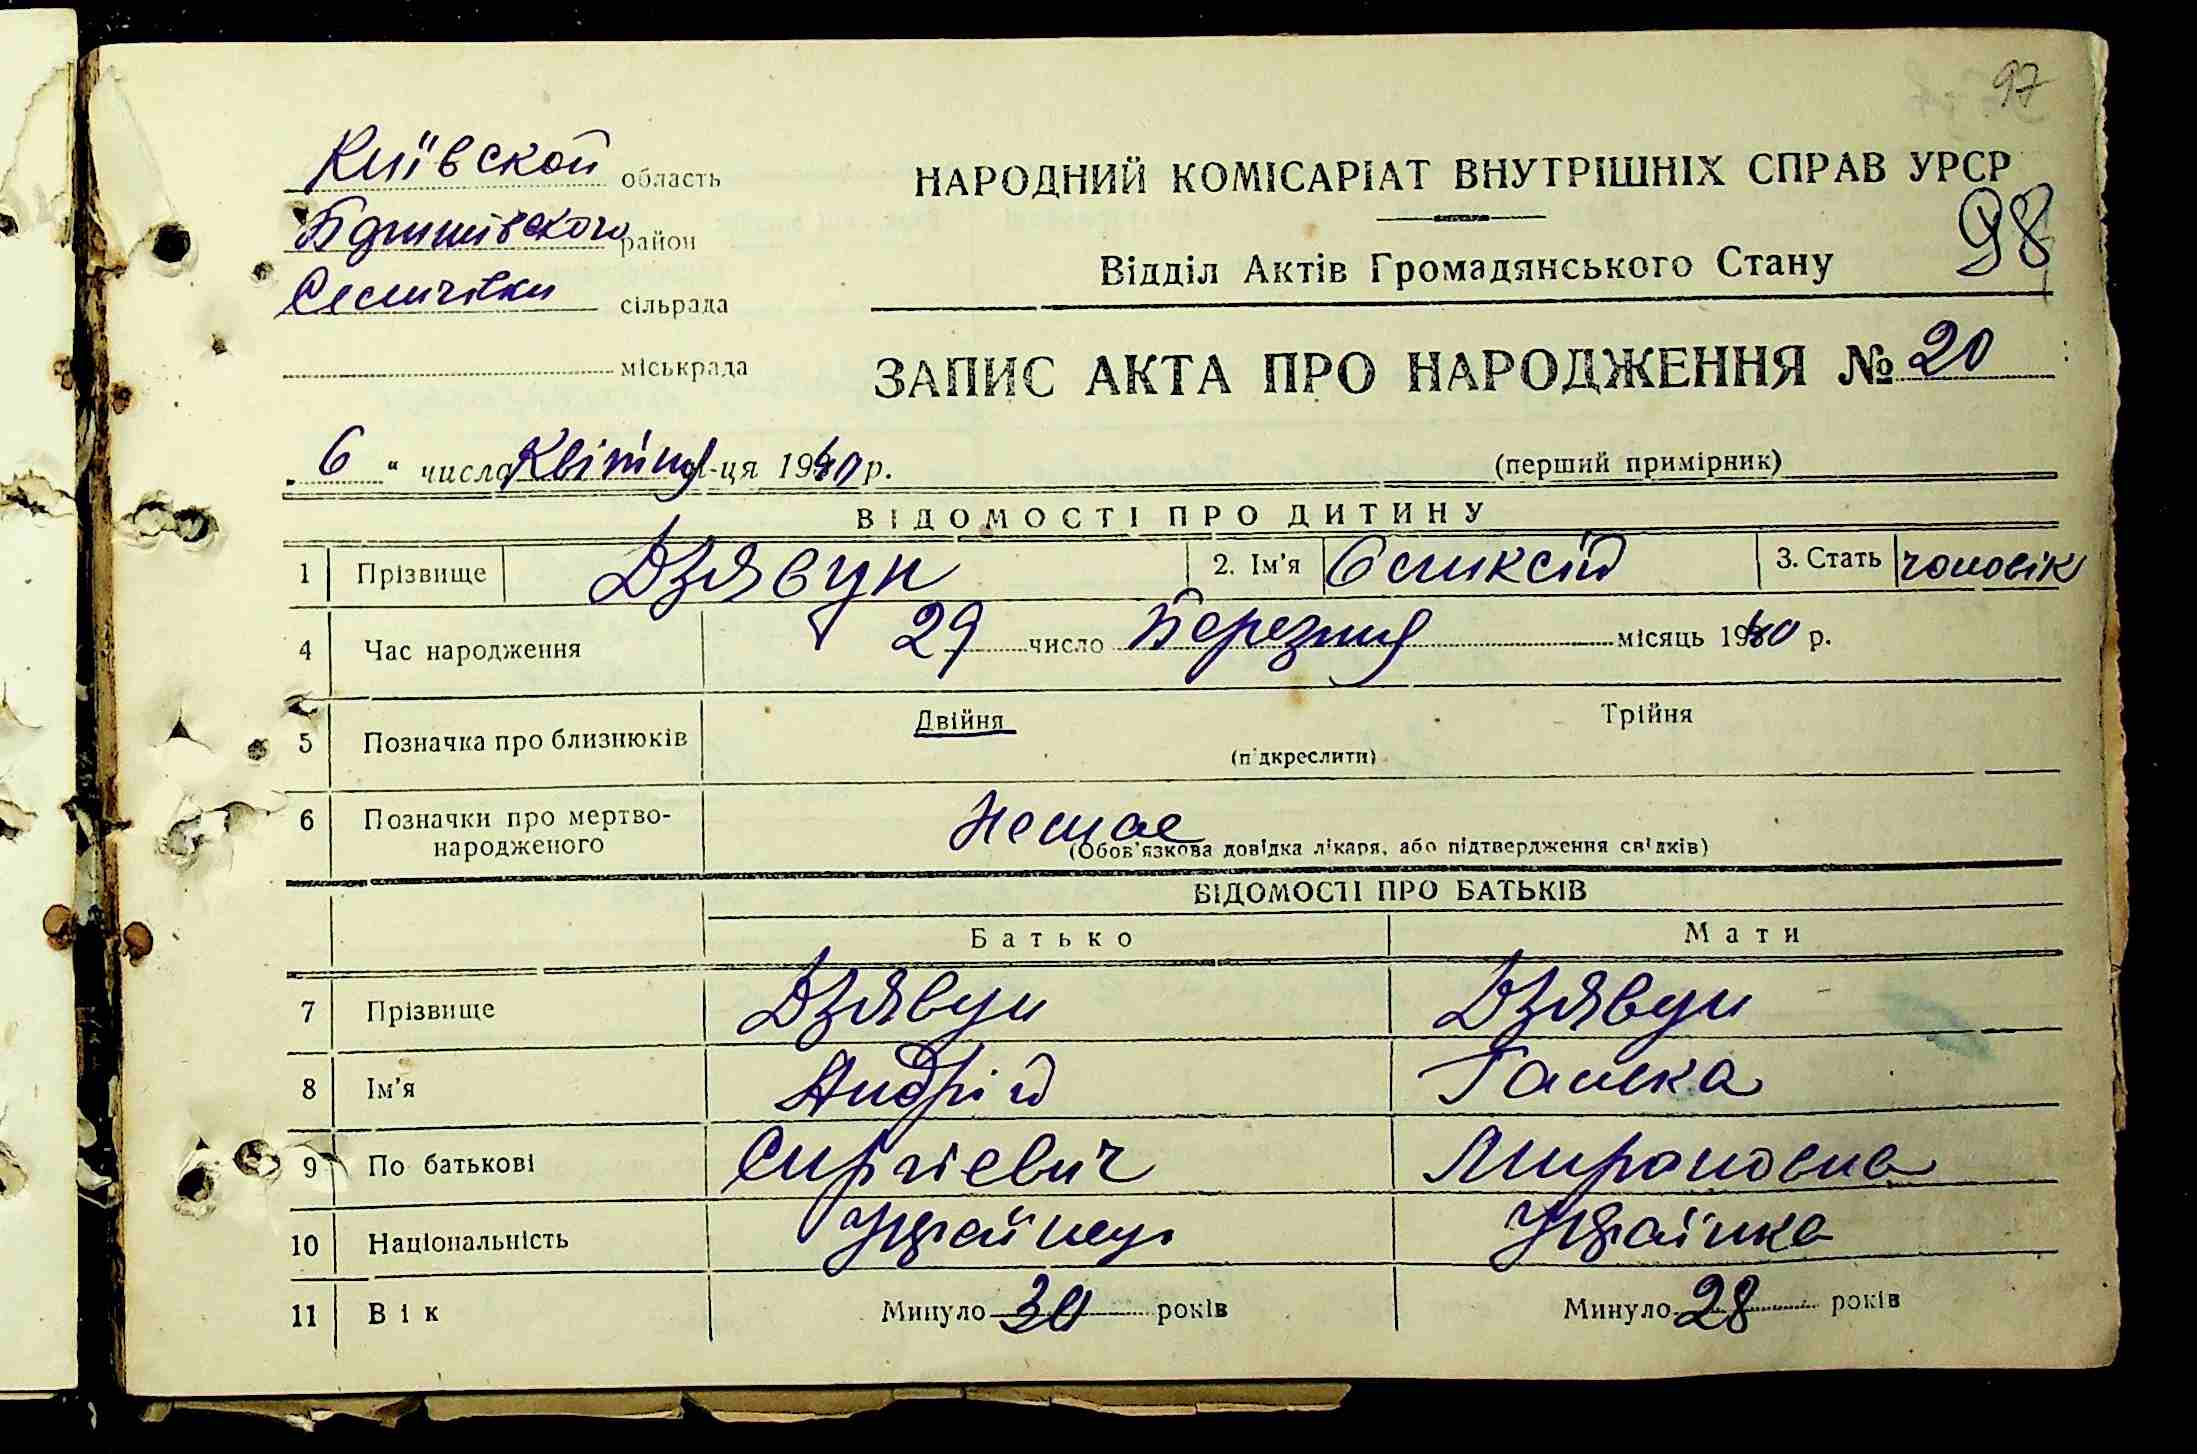 97
Київской область
НАРОДНИЙ КОМІСАРІАТ ВНУТРІШНІХ СПРАВ УРСР
98
район
Відділ Актів Громадянського Стану
сільрада
міськрада
ЗАПИС АКТА ПРО НАРОДЖЕННЯ № 20
6 " числа Квітня м-ця 1940 р.
(перший примірник)
ВІДОМОСТІ ПРО ДИТИНУ
1 Прізвище Дзявун 2. Ім'я 3. Стать чоловік
4 Час народження 29 число Березня місяць 1940 р.
5 Позначка про близнюків Двійня Трійня
(підкреслити)
6 Позначки про мертво-
народженого Немає
(Обов'язкова довідка лікаря, або підтвердження свідків)
ВІДОМОСТІ ПРО БАТЬКІВ
Батько Мати
7 Прізвище Дзявун Дзявун
8 Ім'я Андрій Ганка
9 По батькові Сиргієвич Мироновна
10 Національність Українець Українка
11 Вік Минуло 30 років Минуло 28 років